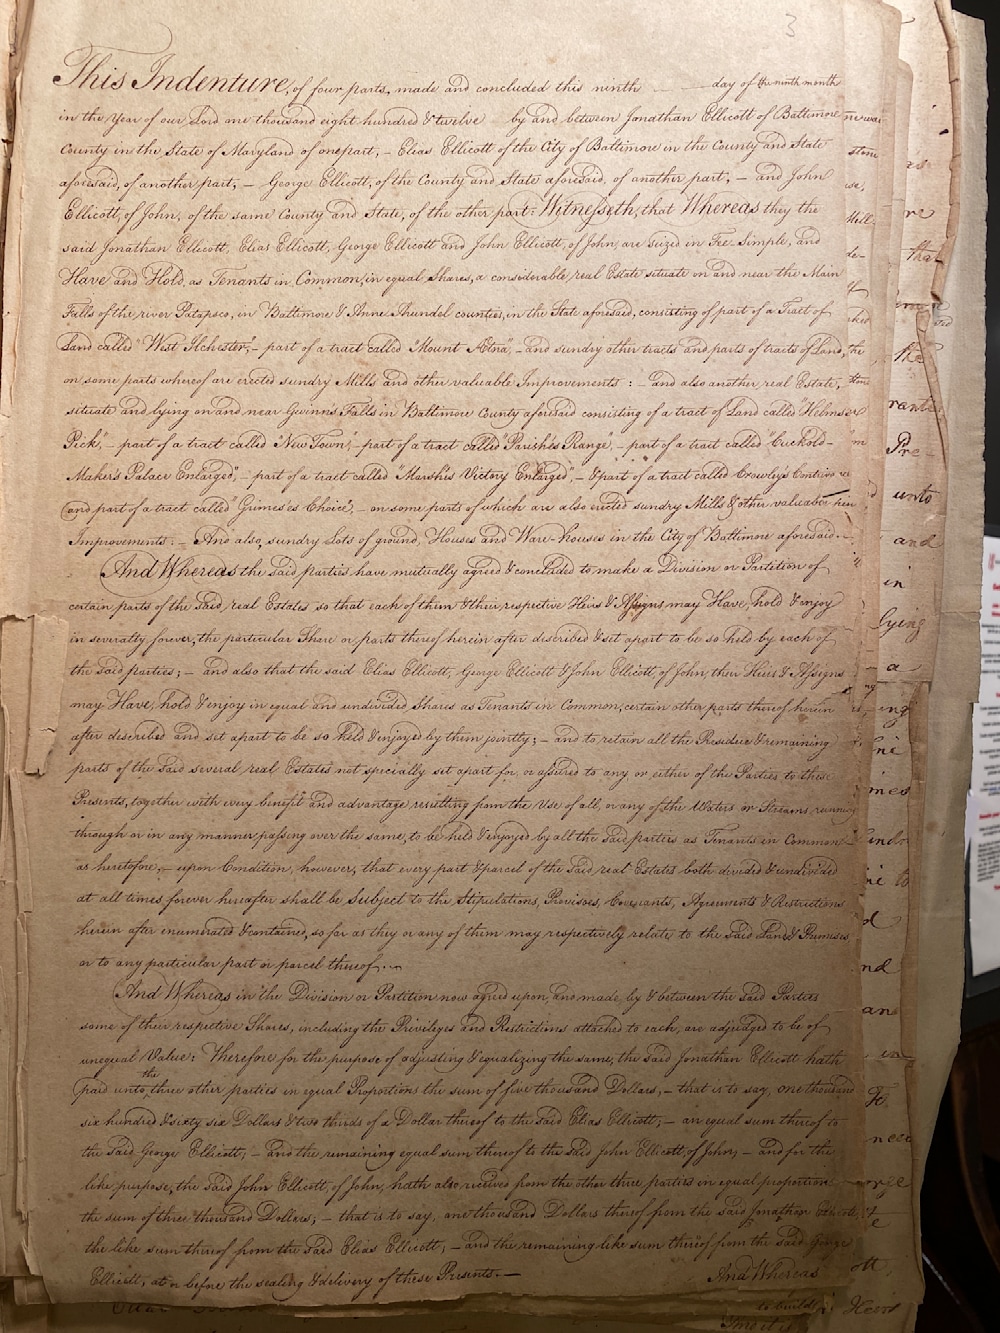 3
This Indenture, of four parts, made and concluded this ninth day of the ninth month
in the Year of our Lord one thousand eight hundred & twelve by and between Jonathan Ellicott of Baltimore
County in the State of Maryland of one part, – Elias Ellicott of the City of Baltimore in the County and State
aforesaid, of another part, – George Ellicott, of the County and State aforesaid, of another part, – and John
Ellicott, of John, of the same County and State, of the other part: Witnesseth, that Whereas they the
said Jonathan Ellicott, Elias Ellicott, George Ellicott and John Ellicott, of John, are seized in Fee Simple, and
Have and Hold, as Tenants in Common, in equal Shares, a considerable real Estate situate on and near the Main
Falls of the river Patapsco, in Baltimore & Anne Arundel counties, in the State aforesaid, consisting of part of a Tract of
Land called "West Ilchester", – part of a tract called "Mount Ætna", – and sundry other tracts and parts of tracts of Land,
on some parts whereof are erected sundry Mills and other valuable Improvements: – and also another real Estate,
situate and lying on and near Gwinns Falls in Baltimore County aforesaid consisting of a tract of Land called "Helms
Pick", – part of a tract called "New Town", – part of a tract called "Parish's Range", – part of a tract called "Cuckold-
Maker's Palace Enlarged", – part of a tract called "Marsh's Victory Enlarged", – & part of a tract called Crowley's
and part of a tract called "Grimes'es Choice", – on some parts of which are also erected sundry Mills & other valuable
Improvements: – And also, sundry Lots of ground, Houses and Ware-houses in the City of Baltimore aforesaid. –
And Whereas the said parties have mutually agreed & concluded to make a Division or Partition of
certain parts of the said real Estates so that each of them & their respective Heirs & Assigns may Have, hold & enjoy
in severalty forever, the particular Share or parts thereof herein after described & set apart to be so held by each of
the said parties; – and also that the said Elias Ellicott, George Ellicott & John Ellicott, of John their Heirs & Assigns
may Have, hold & enjoy in equal and undivided Shares as Tenants in Common, certain other parts thereof herein
after described and set apart to be so held & enjoyed by them jointly; – and to retain all the Residue & remaining
parts of the said several real Estates not specially set apart for, or assured to any or either of the Parties to these
Presents, together with every benefit and advantage resulting from the Use of all, or any of the Waters or Streams, running
through or in any manner passing over the same, to be held & enjoyed by all the said parties as Tenants in Common
as heretofore, – upon Condition, however, that every part & parcel of the said real Estates both divided & undivided
at all times forever hereafter shall be Subject to the Stipulations, Provisoes, Covenants, Agreements & Restrictions
herein after enumerated & contained, so far as they or any of them may respectively relate to the said Land & Premises
or to any particular part or parcel thereof. –
And Whereas in the Division or Partition now agreed upon, and made, by & between the said Parties
some of their respective Shares, including the Privileges and Restrictions attached to each, are adjudged to be of
unequal Value: Therefore for the purpose of adjusting & equalizing the same, the said Jonathan Ellicott hath
paid unto the three other parties in equal Proportions the sum of five thousand Dollars, – that is to say, one thousand
six hundred & sixty six Dollars & two thirds of a Dollar thereof to the said Elias Ellicott; – an equal sum thereof to
the said George Ellicott; – and the remaining equal sum thereof to the said John Ellicott, of John; – and for the
like purpose, the said John Ellicott, of John, hath also received from the other three parties in equal proportions
the sum of three thousand Dollars, – that is to say, one thousand Dollars thereof from the said Jonathan Ellicott
the like sum thereof from the said Elias Ellicott, – and the remaining like sum thereof from the said George
Ellicott, at or before the sealing & delivery of these Presents. –
And Whereas